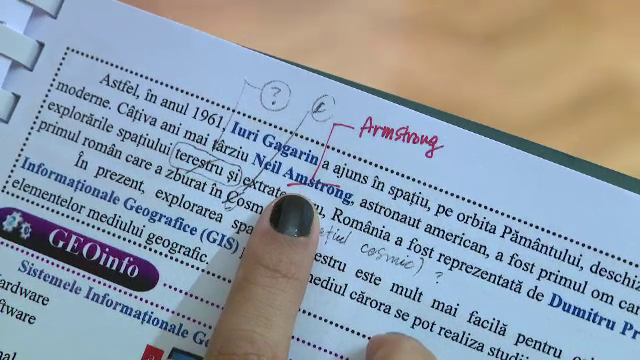 ?
€
Armstrong
Astfel, în anul 1961 Iuri Gagarin a ajuns în spațiu, pe orbita Pământului, deschi
moderne. Câțiva ani mai târziu Neil Amstrong, astronaut american, a fost primul om car
explorările spațiului terestru și România a fost reprezentată de Dumitru P
primul român care a zburat în
cosmic) ?
În prezent, explorarea este mult mai facilă pentru
Informaționale Geografice (GIS) mediul cărora se pot realiza studi
elementelor mediului geografic.
GEOinfo
Sistemele Informaționale